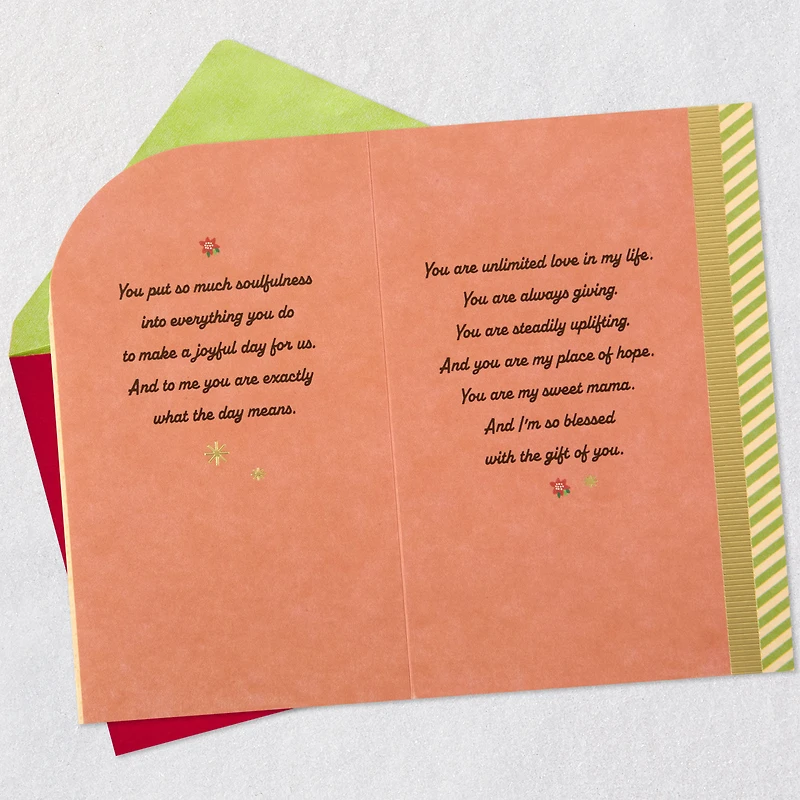 You put so much soulfulness
into everything you do
to make a joyful day for us.
And to me you are exactly
what the day means.
You are unlimited love in my life.
You are always giving.
You are steadily uplifting.
And you are my place of hope.
You are my sweet mama.
And I'm so blessed
with the gift of you.